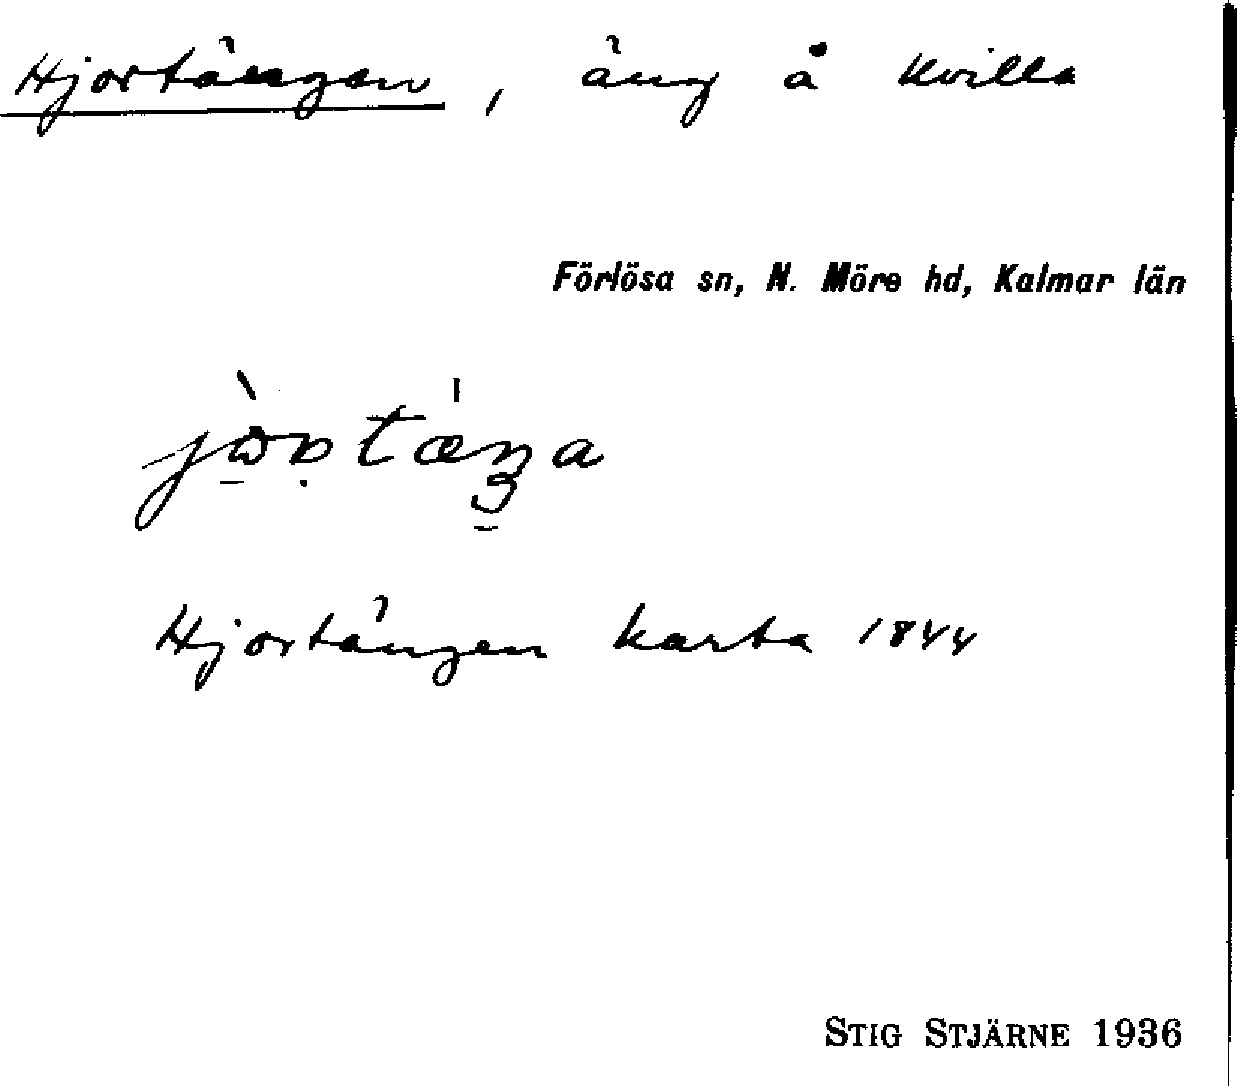 Hjortängen, äng å Kvilla
Förlösa sn, N. Möre hd, Kalmar län
Hjortängen karta 1844
STIG STJÄRNE 1936